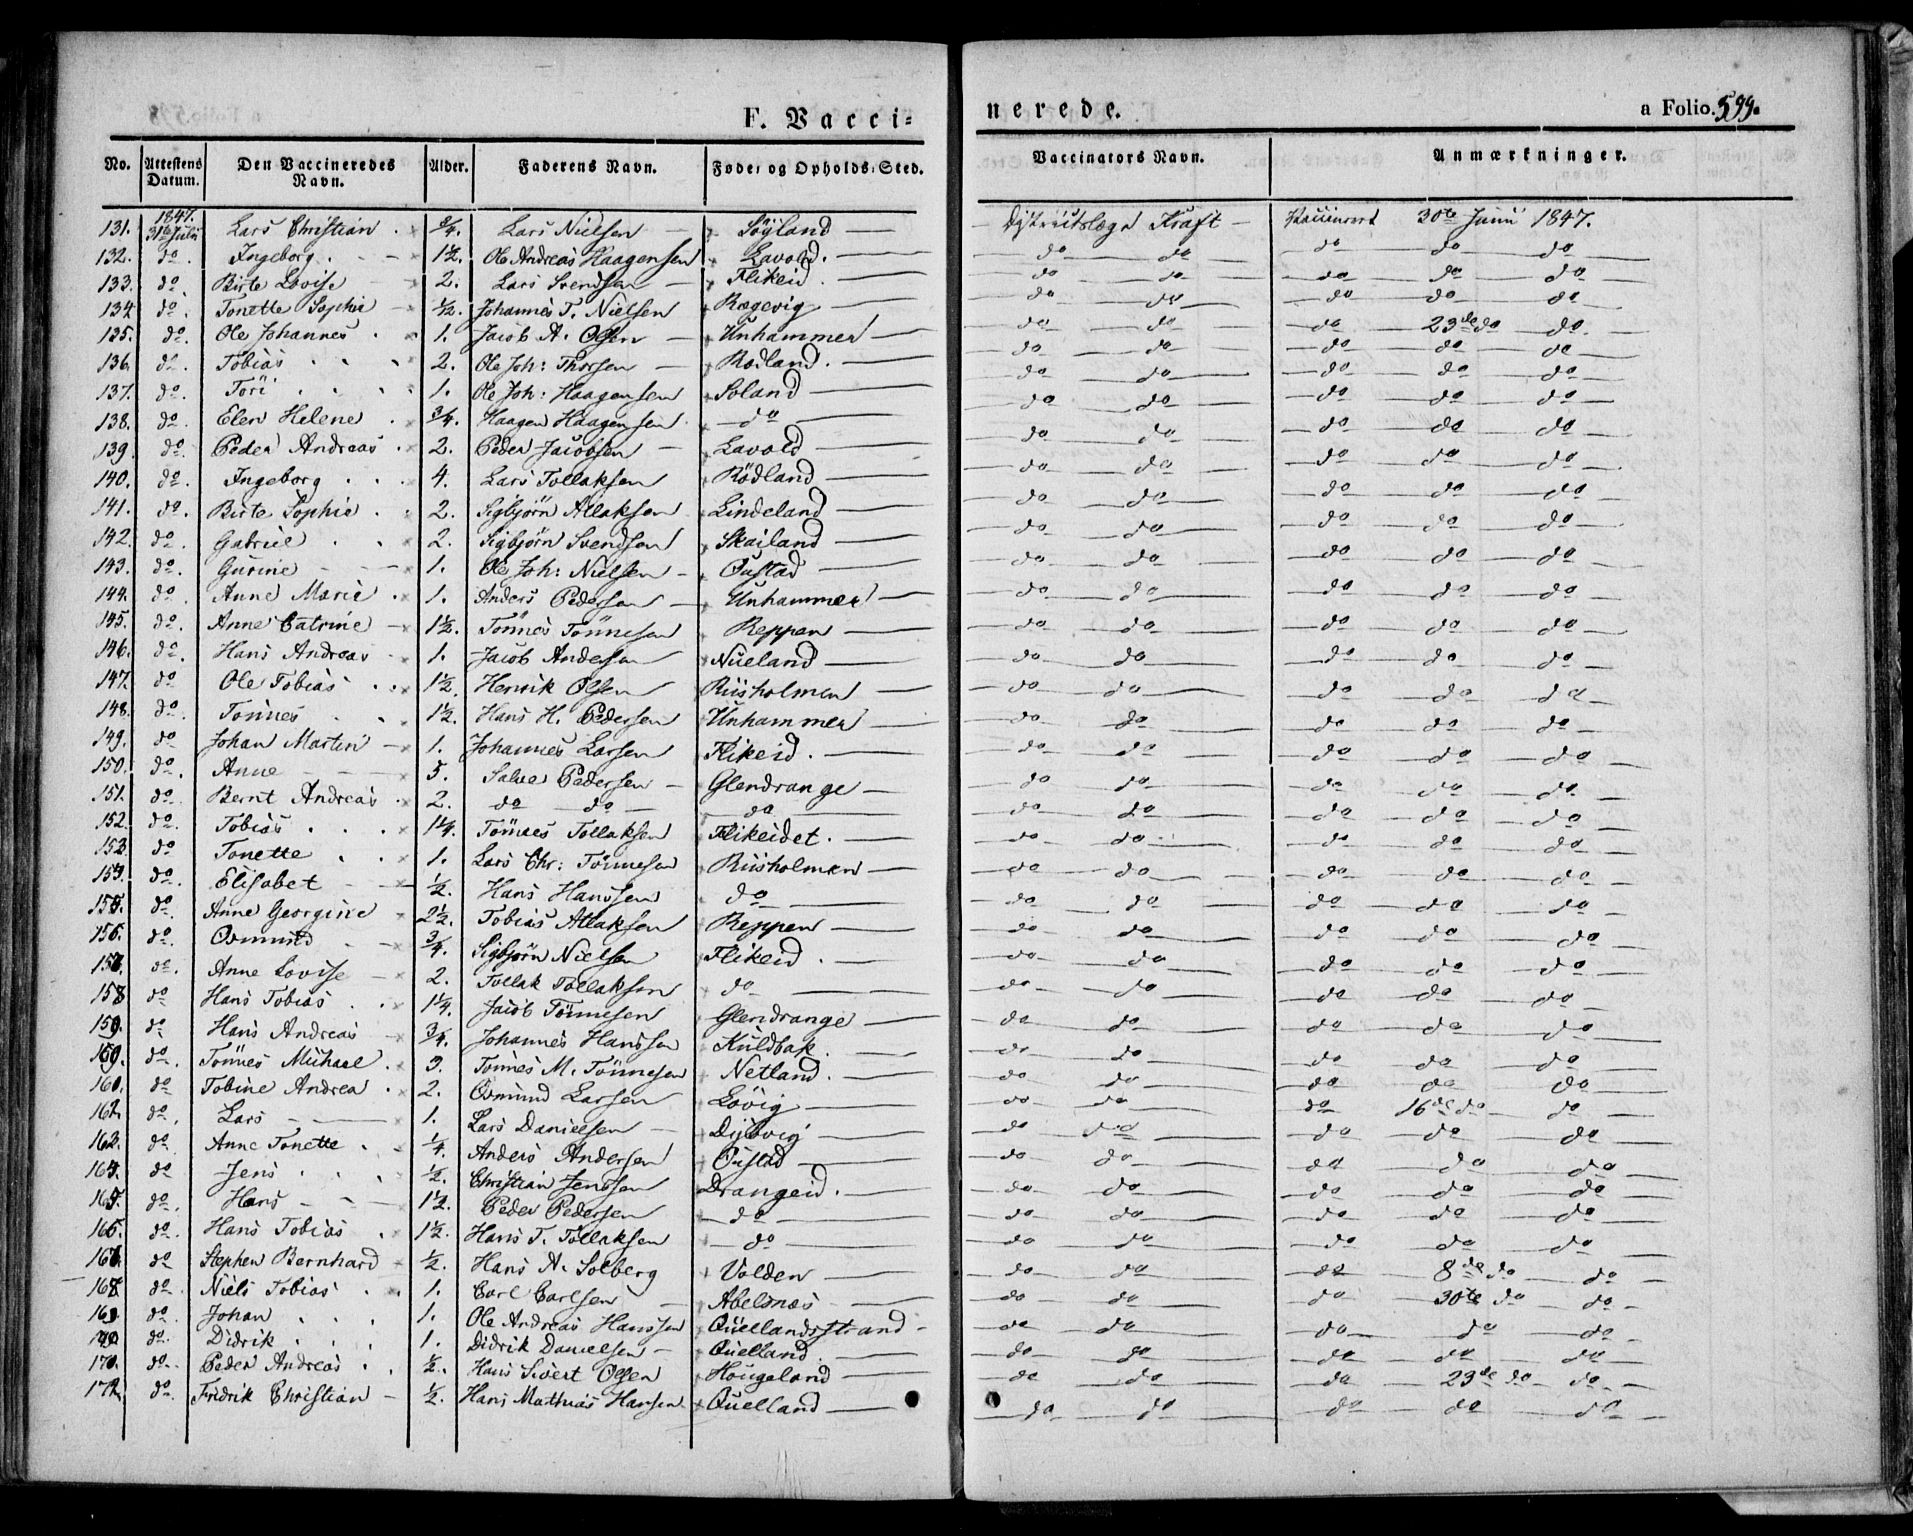 F. Vacci= nerede. a Folio. 599.
No. | Attestens Datum. | Den Vaccineredes Navn. | Alder. | Faderens Navn. | Føde= og Opholds=Sted. | Vaccinators Navn. | Anmærkninger.
131. | 1847. 31te Juli | Lars Christian | 3/4. | Lars Nielsen | Söyland | Distriktslæge Kraft | Vaccineret 30te Juni 1847.
132. | do. | Ingeborg | 1 1/2. | Ole Andreas Haagensen | Lavold. | do do | do do do
133. | do. | Birte Lovise | 2. | Lars Svendsen | Flikeid. | do do | do do do
134. | do. | Tonette Sophie | 1/2. | Johannes T. Nielsen | Rægevig | do do | do do do
135. | do. | Ole Johannes | 1. | Jacob A. Olsen | Unhammer | do do | do 23de do do
136. | do. | Tobias | 2. | Ole Joh: Thorsen | Rödland. | do do | do do do
137. | do. | Tori | 1. | Ole Joh: Haagensen | Soland | do do | do do do
138. | do. | Elen Helene | 3/4. | Haagen Haagensen | do | do do | do do do
139. | do. | Peder Andreas | 2. | Peder Jacobsen | Lavold | do do | do do do
140. | do. | Ingeborg | 4. | Lars Tollaksen | Rödland | do do | do do do
141. | do. | Birte Sophie | 2. | Sigbjörn Atlaksen | Lindeland | do do | do do do
142. | do. | Gabriel | 2. | Sigbjörn Svendsen | Skailand | do do | do do do
143. | do. | Gurine | 1. | Ole Joh: Nielsen | Oustad | do do | do do do
144. | do. | Anne Marie | 1. | Anders Pedersen | Unhammer | do do | do do do
145. | do. | Anne Catrine | 1 1/2. | Tönnes Tönnesen | Reppen | do do | do do do
146. | do. | Hans Andreas | 1. | Jacob Andersen | Nueland | do do | do do do
147. | do | Ole Tobias | 1 1/2. | Henrik Olsen | Riisholmen | do do | do do do
148. | do. | Tönnes | 1 1/2. | Hans H. Pedersen | Unhammer | do do | do do do
149. | do | Johan Martin | 1. | Johannes Larsen | Flikeid. | do do | do do do
150. | do. | Anne | 5. | Salve Pedersen | Glendrange | do do | do do do
151. | do. | Bernt Andreas | 2. | do do | do | do do | do do do
152. | do. | Tobias | 1 1/4. | Tönnes Tollaksen | Flikeidet. | do do | do do do
153. | do | Tonette | 1. | Lars Chr: Tönnesen | Riisholmen | do do | do do do
154. | do. | Elisabet | 1/2. | Hans Hanssen | do | do do | do do do
155. | do. | Anne Georgine | 2 1/2. | Tobias Atlaksen | Reppen | do do | do do do
156. | do. | Osmund | 3/4. | Sigbjörn Nielsen | Flikeid. | do do | do do do
157. | do. | Anne Lovise | 2. | Tollak Tollaksen | do | do do | do do do
158 | do | Hans Tobias | 1 1/4. | Jacob Tönnesen | Glendrange | do do | do do do
159. | do | Hans Andreas | 3/4. | Johannes Hanssen | Kuldbak. | do do | do do do
160. | do. | Tönnes Michael | 3. | Tönnes M. Tönnesen | Netland. | do do | do do do
161. | do | Tobine Andrea | 2. | Osmund Larsen | Lövig | do do | do do do
162. | do. | Lars | 1. | Lars Danielsen | Dybvig | do do | do 16de do do
163. | do. | Anne Tonette | 1/4. | Anders Andersen | Oustad | do do | do do do
164. | do | Jens | 1/2. | Christian Jenssen | Drangeid. | do do | do do do
165. | do. | Hans | 1 1/2. | Peder Pedersen | do | do do | do do do
166. | do. | Hans Tobias | 1 1/2. | Hans T. Tollaksen | do | do do | do do do
167. | do | Stephen Bernhard | 1/2. | Hans A. Solberg | Volden | do do | do do do
168. | do. | Niels Tobias | 1. | Carl Carlsen | Abelsnæs | do do | do 8de do do
169. | do. | Johan | 1. | Ole Andreas Hanssen | Quellandsstrand | do do | do 30te do do
170. | do. | Didrik | 1. | Didrik Danielsen | Quelland | do do | do do do
171. | do. | Peder Andreas | 1/2. | Hans Sivert Olsen | Hougeland | do do | do do do
172. | do. | Fredrik Christian | 1/2. | Hans Mathias Hansen | Quelland | do do | do 23de do do
do do | do do do